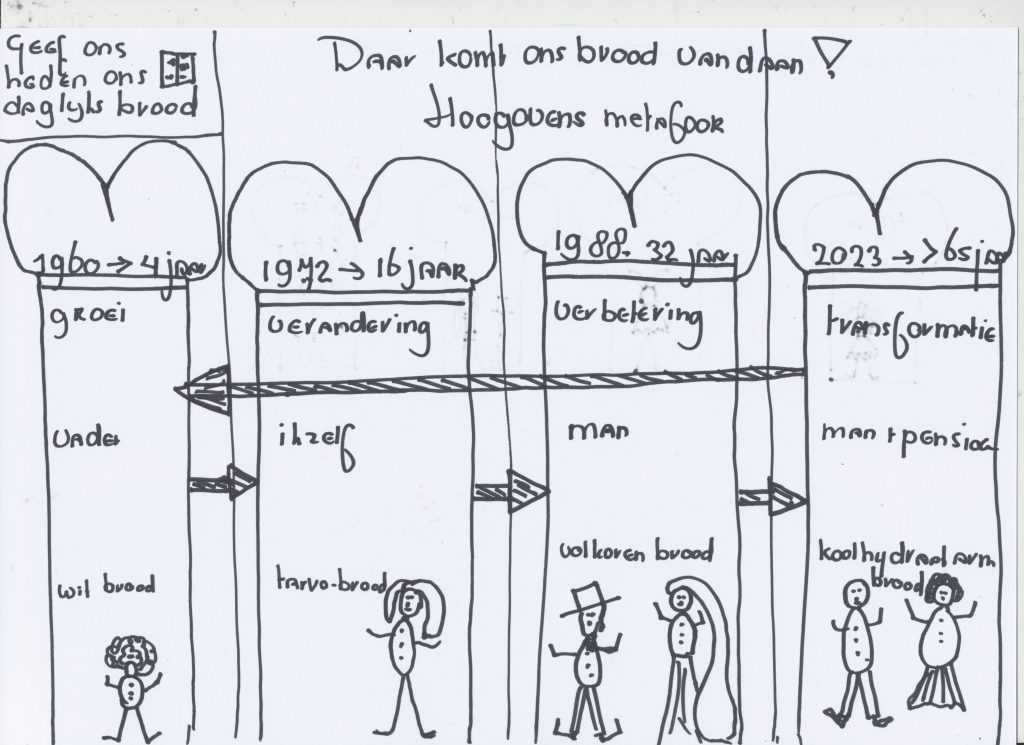 Geef ons
heden ons
daglyks brood
Daar komt ons brood vandaan!
Hoogovens metafoor
1960 → 4 jaar
groei
vader
wit brood
1972 → 16 jaar
verandering
ikzelf
tarvo-brood
1988 - 32 jaar
verbetering
man
volkoren brood
2023 → > 65 jaar
transformatie
man + pensioen
koolhydraatarm
brood